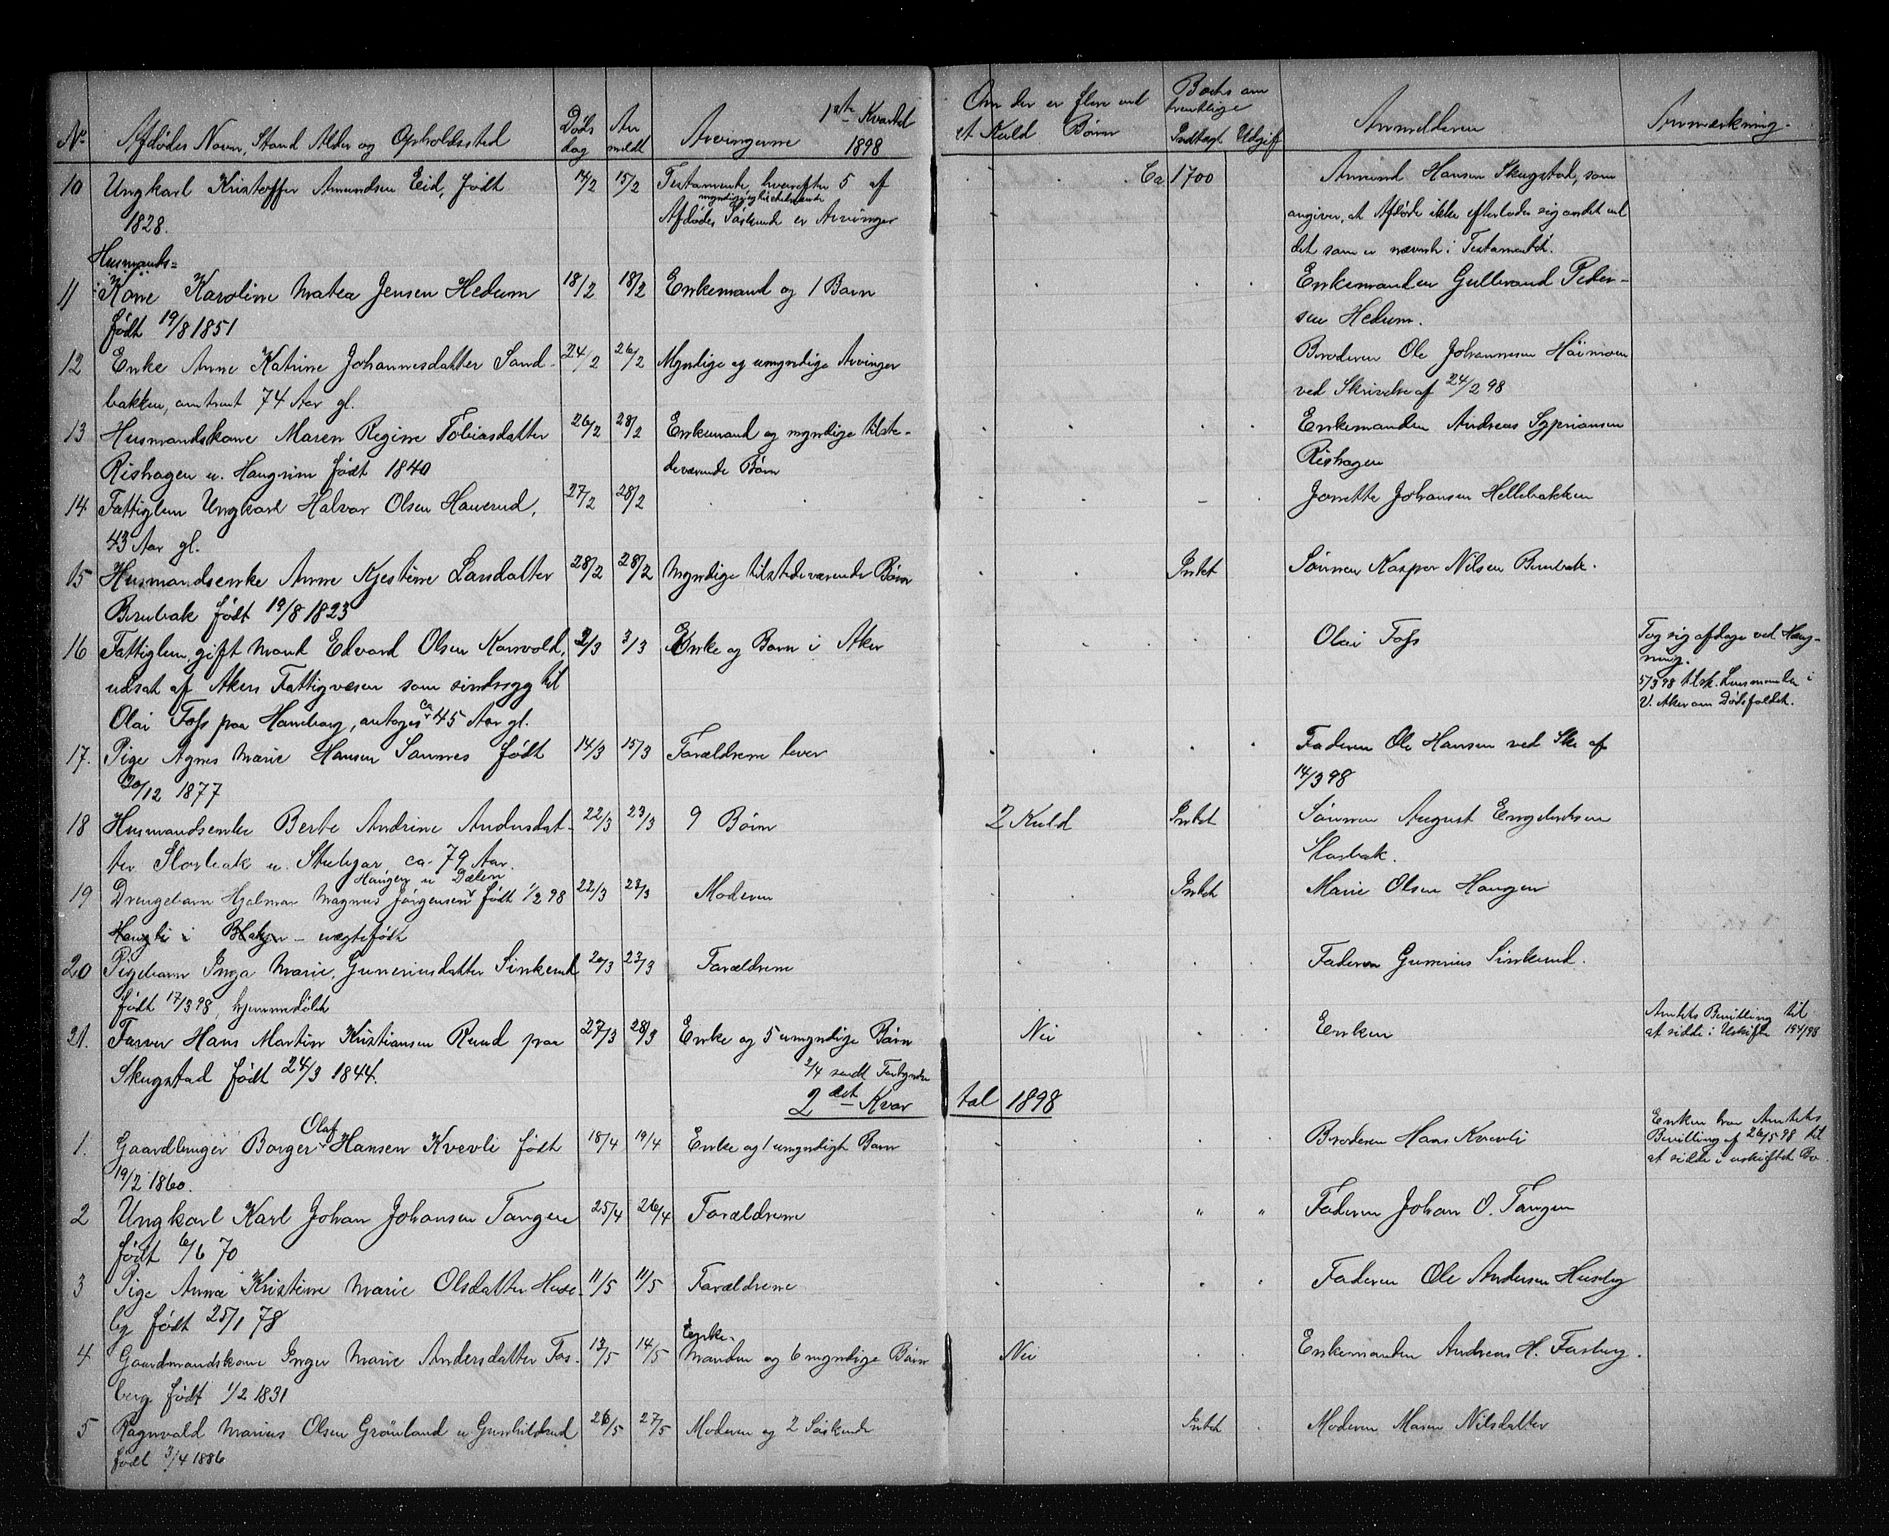 No. Afdødes Navn, Stand Alder og Opholdssted Døds dag An meldt Arvingerne 1ste Kvartal 1898 Om der er flere end et Kuld Børn Boets omtrentlige Indtægt Udgift Anmelderen Anmærkning.
10 Ungkarl Kristoffer Amundsen Eid, født 14/2 15/2 Testamente, hvorefter 5 af Ca 1700 Amund Hansen Skugstad, som
1828. Afdødes Søskende er Arvinger angiver, at Afdøde ikke efterlader sig andet end
det som er nævnt i Testamentet.
Husmands-
11 Kone Karoline Matea Jensen Hedum 18/2 18/2 Enkemand og 1 Barn Enkemanden Gulbrand Peder-
født 19/8 1851 sen Hedum.
12 Enke Anne Katrine Johannesdatter Sand- 24/2 26/2 Myndige og umyndige Arvinger Broderen Ole Johannesen Höimoen
bakken, omtrent 74 Aar gl. ved Skrivelse af 24/2 98
13 Husmandskone Maren Regine Tobiasdatter 26/2 28/2 Enkemand og myndige tilste- Enkemanden Andreas Sypriansen
Rishagen u. Haugrim født 1840 deværende Børn Rishagen
14 Fattiglem Ungkarl Halvor Olsen Haverud, 27/2 28/2 Jonette Johansen Hellebakken
43 Aar gl.
15 Husmandsenke Anne Kjestine Larsdatter 28/2 28/2 Myndige tilstedeværende Børn Intet Sönnen Kasper Nilsen Brubak.
Brubak født 19/8 1823
16 Fattiglem gift Mand Edvard Olsen Korsvold, 2/3 3/3 Enke og Barn i Aker Olai Foss Tog sig afdage ved Hæng-
ning.
udsat af Akers Fattigvæsen som sindssyg til 5/3 98 tilsk. Lensmanden i
Olai Foss paa Hamborg, antages ca 45 Aar gl. V. Aker om Dødsfaldet.
17. Pige Agnes Marie Hansen Sannes født 14/3 15/3 Forældrene lever Faderen Ole Hansen ved Skr af
20/12 1877 14/3 98
18 Husmandsenke Berte Andrine Andersdat- 22/3 23/3 9 Börn 2 Kuld Intet Sönnen August Engebretsen
ter Slorbak u. Skulgar, ca 79 Aar. Slorbak.
Haugen u Dælen
19 Drengebarn Hjalmar Magnus Jørgensen født 1/2 98 22/3 23/3 Moderen Intet Marie Olsen Haugen
uægtefødt
20 Pigebarn Inga Marie Guneriusdatter Sinkerud 20/3 23/3 Forældrene Faderen Gunerius Sinkerud.
født 17/3 98, hjemmedöbt
21. Farver Hans Martin Kristiansen Rund paa 27/3 28/3 Enke og 5 umyndige Børn Nei Enken Amtets Bevilling til
at sidde i Uskifte 19/4/98
Skugstad født 24/3 1844.
2det Kvartal 1898
Olaf
1. Gaardbruger Borger Hansen Kvevli født 18/4 19/4 Enke og 1 umyndigt Barn Broderen Hans Kvevli Enken har Amtets
Bevilling af 26/5 98 til
at sidde i uskiftet Bo.
19/2 1860.
2 Ungkarl Karl Johan Johansen Tangen 25/4 26/4 Forældrene " " Faderen Johan O. Tangen
født 6/6 70
3 Pige Anna Kristine Marie Olsdatter Huse- 11/5 11/5 Forældrene Faderen Ole Andersen Huseby
by født 25/1 78
4 Gaardmandskone Inger Marie Andersdatter Fos- 13/5 14/5 Enke-
manden og 6 myndige Børn Nei Enkemanden Andreas H. Fosberg.
berg født 1/2 1831
5 Ragnvald Marius Olsen Grönland u Gunhildrud 26/5 27/5 Moderen og 2 Søskende Intet Moderen Maren Nilsdatter
født 3/4 1886